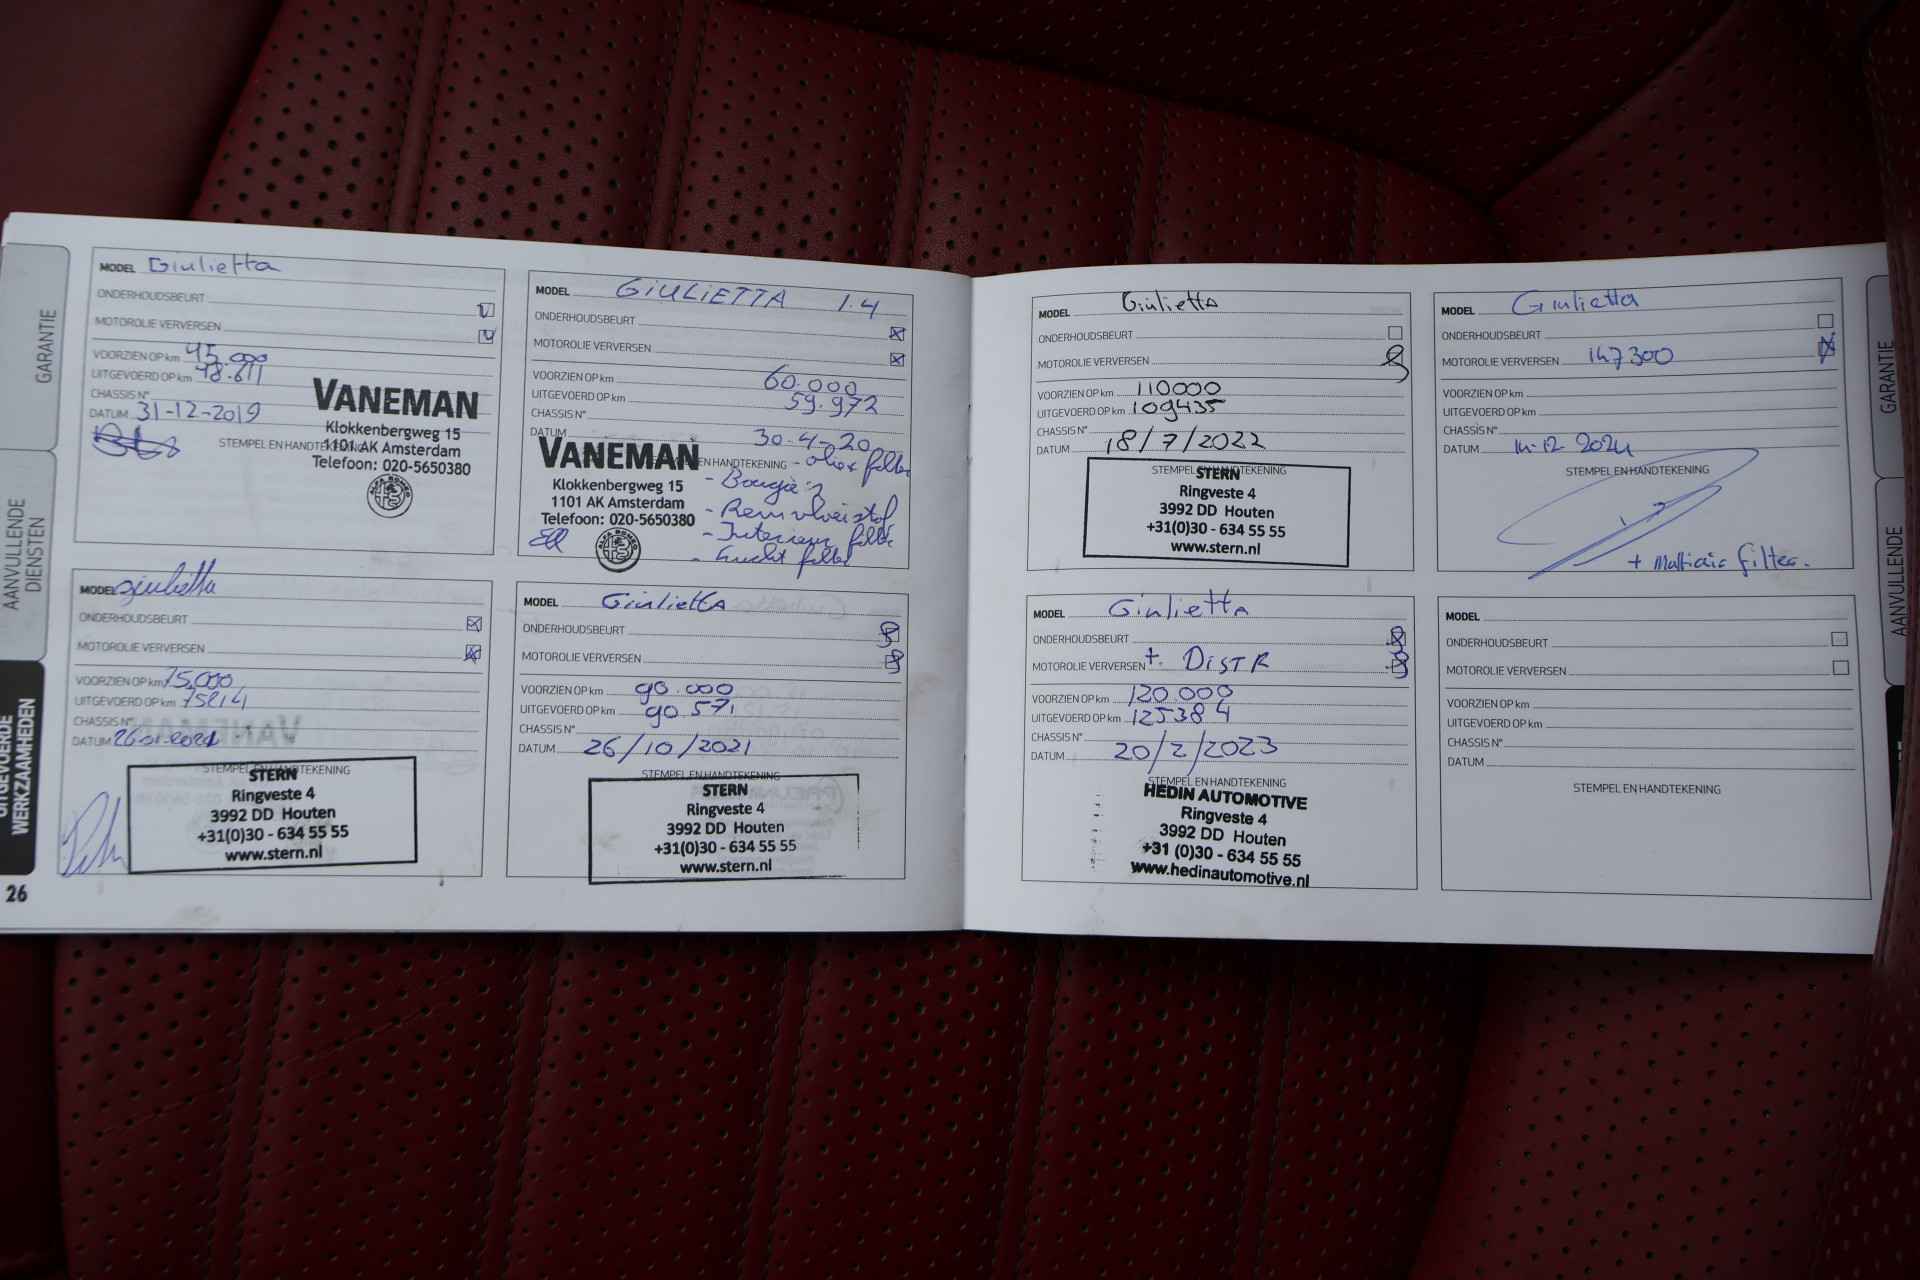 GARANTIE
AANVULLENDE
DIENSTEN
UITGEVOERDE
WERKZAAMHEDEN
26
MODEL Giulietta
ONDERHOUDSBEURT
MOTOROLIE VERVERSEN
VOORZIEN OP km 45.000
UITGEVOERD OP km 48.611
CHASSIS N°
DATUM 31-12-2019
STEMPEL EN HANDTEKENING
VANEMAN
Klokkenbergweg 15
1101 AK Amsterdam
Telefoon: 020-5650380
ALFA ROMEO
MODEL GIULIETTA 1.4
ONDERHOUDSBEURT
MOTOROLIE VERVERSEN
VOORZIEN OP km 60.000
UITGEVOERD OP km 59.972
CHASSIS N°
DATUM 30-4-20
EN HANDTEKENING
VANEMAN
Klokkenbergweg 15
1101 AK Amsterdam
Telefoon: 020-5650380
ALFA ROMEO
- olie filter
- Bougie's
- Remvloeistof
- Interieur filter
- Lucht filter
MODEL giulietta
ONDERHOUDSBEURT
MOTOROLIE VERVERSEN
VOORZIEN OP km 75.000
UITGEVOERD OP km
CHASSIS N°
DATUM
STEMPEL EN HANDTEKENING
STERN
Ringveste 4
3992 DD Houten
+31(0)30 - 634 55 55
www.stern.nl
MODEL Giulietta
ONDERHOUDSBEURT
MOTOROLIE VERVERSEN
VOORZIEN OP km 90.000
UITGEVOERD OP km 90.571
CHASSIS N°
DATUM 26/10/2021
STEMPEL EN HANDTEKENING
STERN
Ringveste 4
3992 DD Houten
+31(0)30 - 634 55 55
www.stern.nl
MODEL Giulietta
ONDERHOUDSBEURT
MOTOROLIE VERVERSEN
VOORZIEN OP km 110000
UITGEVOERD OP km 109435
CHASSIS N°
DATUM 18/7/2022
STEMPEL EN HANDTEKENING
STERN
Ringveste 4
3992 DD Houten
+31(0)30 - 634 55 55
www.stern.nl
MODEL Giulietta
ONDERHOUDSBEURT
MOTOROLIE VERVERSEN 147300
VOORZIEN OP km
UITGEVOERD OP km
CHASSIS N°
DATUM 14-12-2024
STEMPEL EN HANDTEKENING
+ filter.
MODEL Giulietta
ONDERHOUDSBEURT
MOTOROLIE VERVERSEN + DISTR
VOORZIEN OP km 120.000
UITGEVOERD OP km 125384
CHASSIS N°
DATUM 20/2/2023
STEMPEL EN HANDTEKENING
HEDIN AUTOMOTIVE
Ringveste 4
3992 DD Houten
+31 (0)30 - 634 55 55
www.hedinautomotive.nl
MODEL
ONDERHOUDSBEURT
MOTOROLIE VERVERSEN
VOORZIEN OP km
UITGEVOERD OP km
CHASSIS N°
DATUM
STEMPEL EN HANDTEKENING
GARANTIE
AANVULLENDE